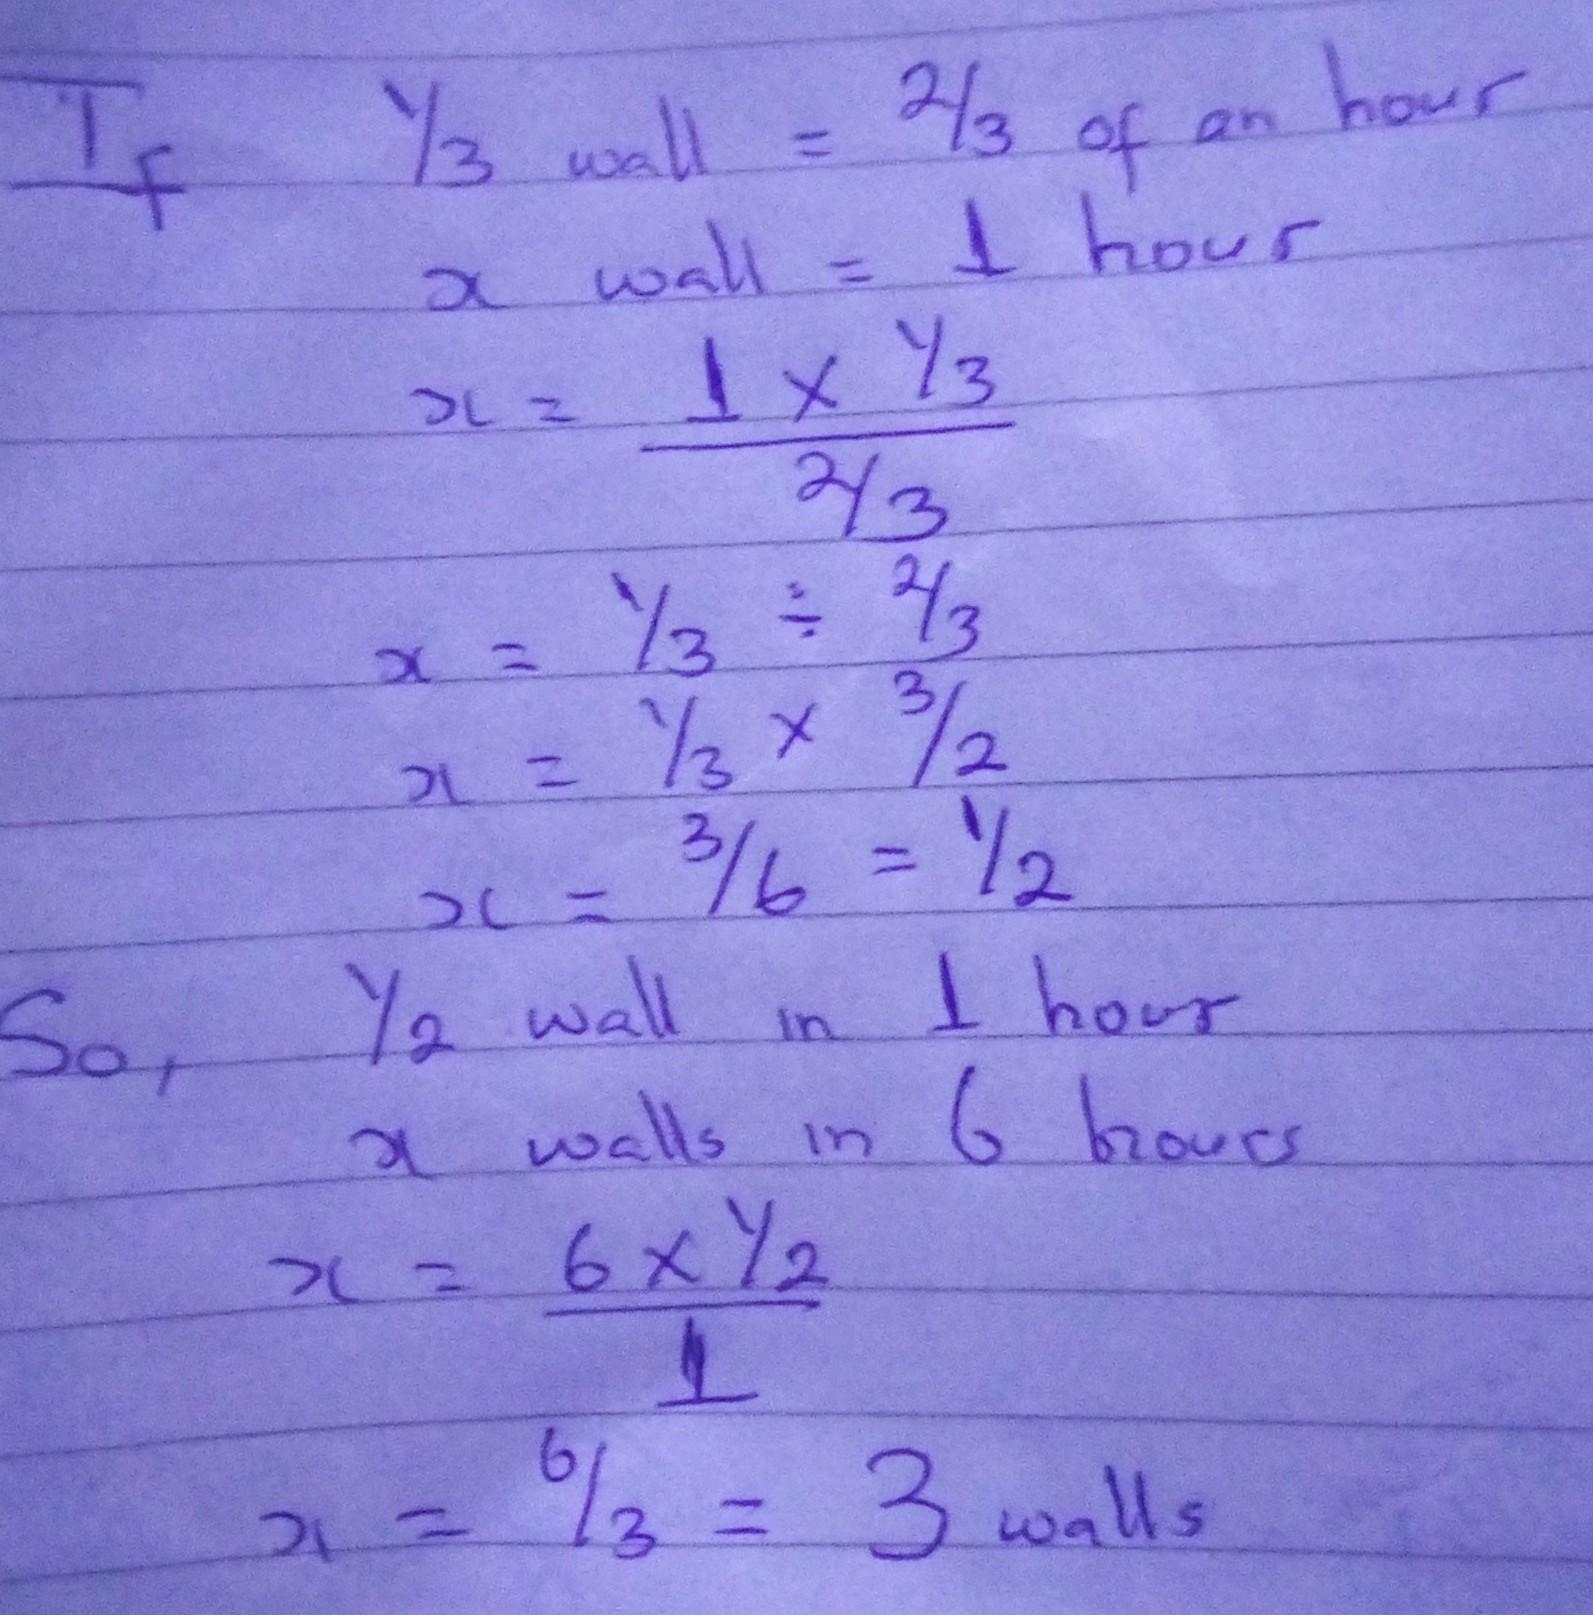 If 1/3 wall = 2/3 of an hour
x wall = 1 hour
x = 1 x 1/3
2/3
x = 1/3 ÷ 2/3
x = 1/3 x 3/2
x = 3/6 = 1/2
So, 1/2 wall in 1 hour
x walls in 6 hours
x = 6 x 1/2
1
x = 6/3 = 3 walls